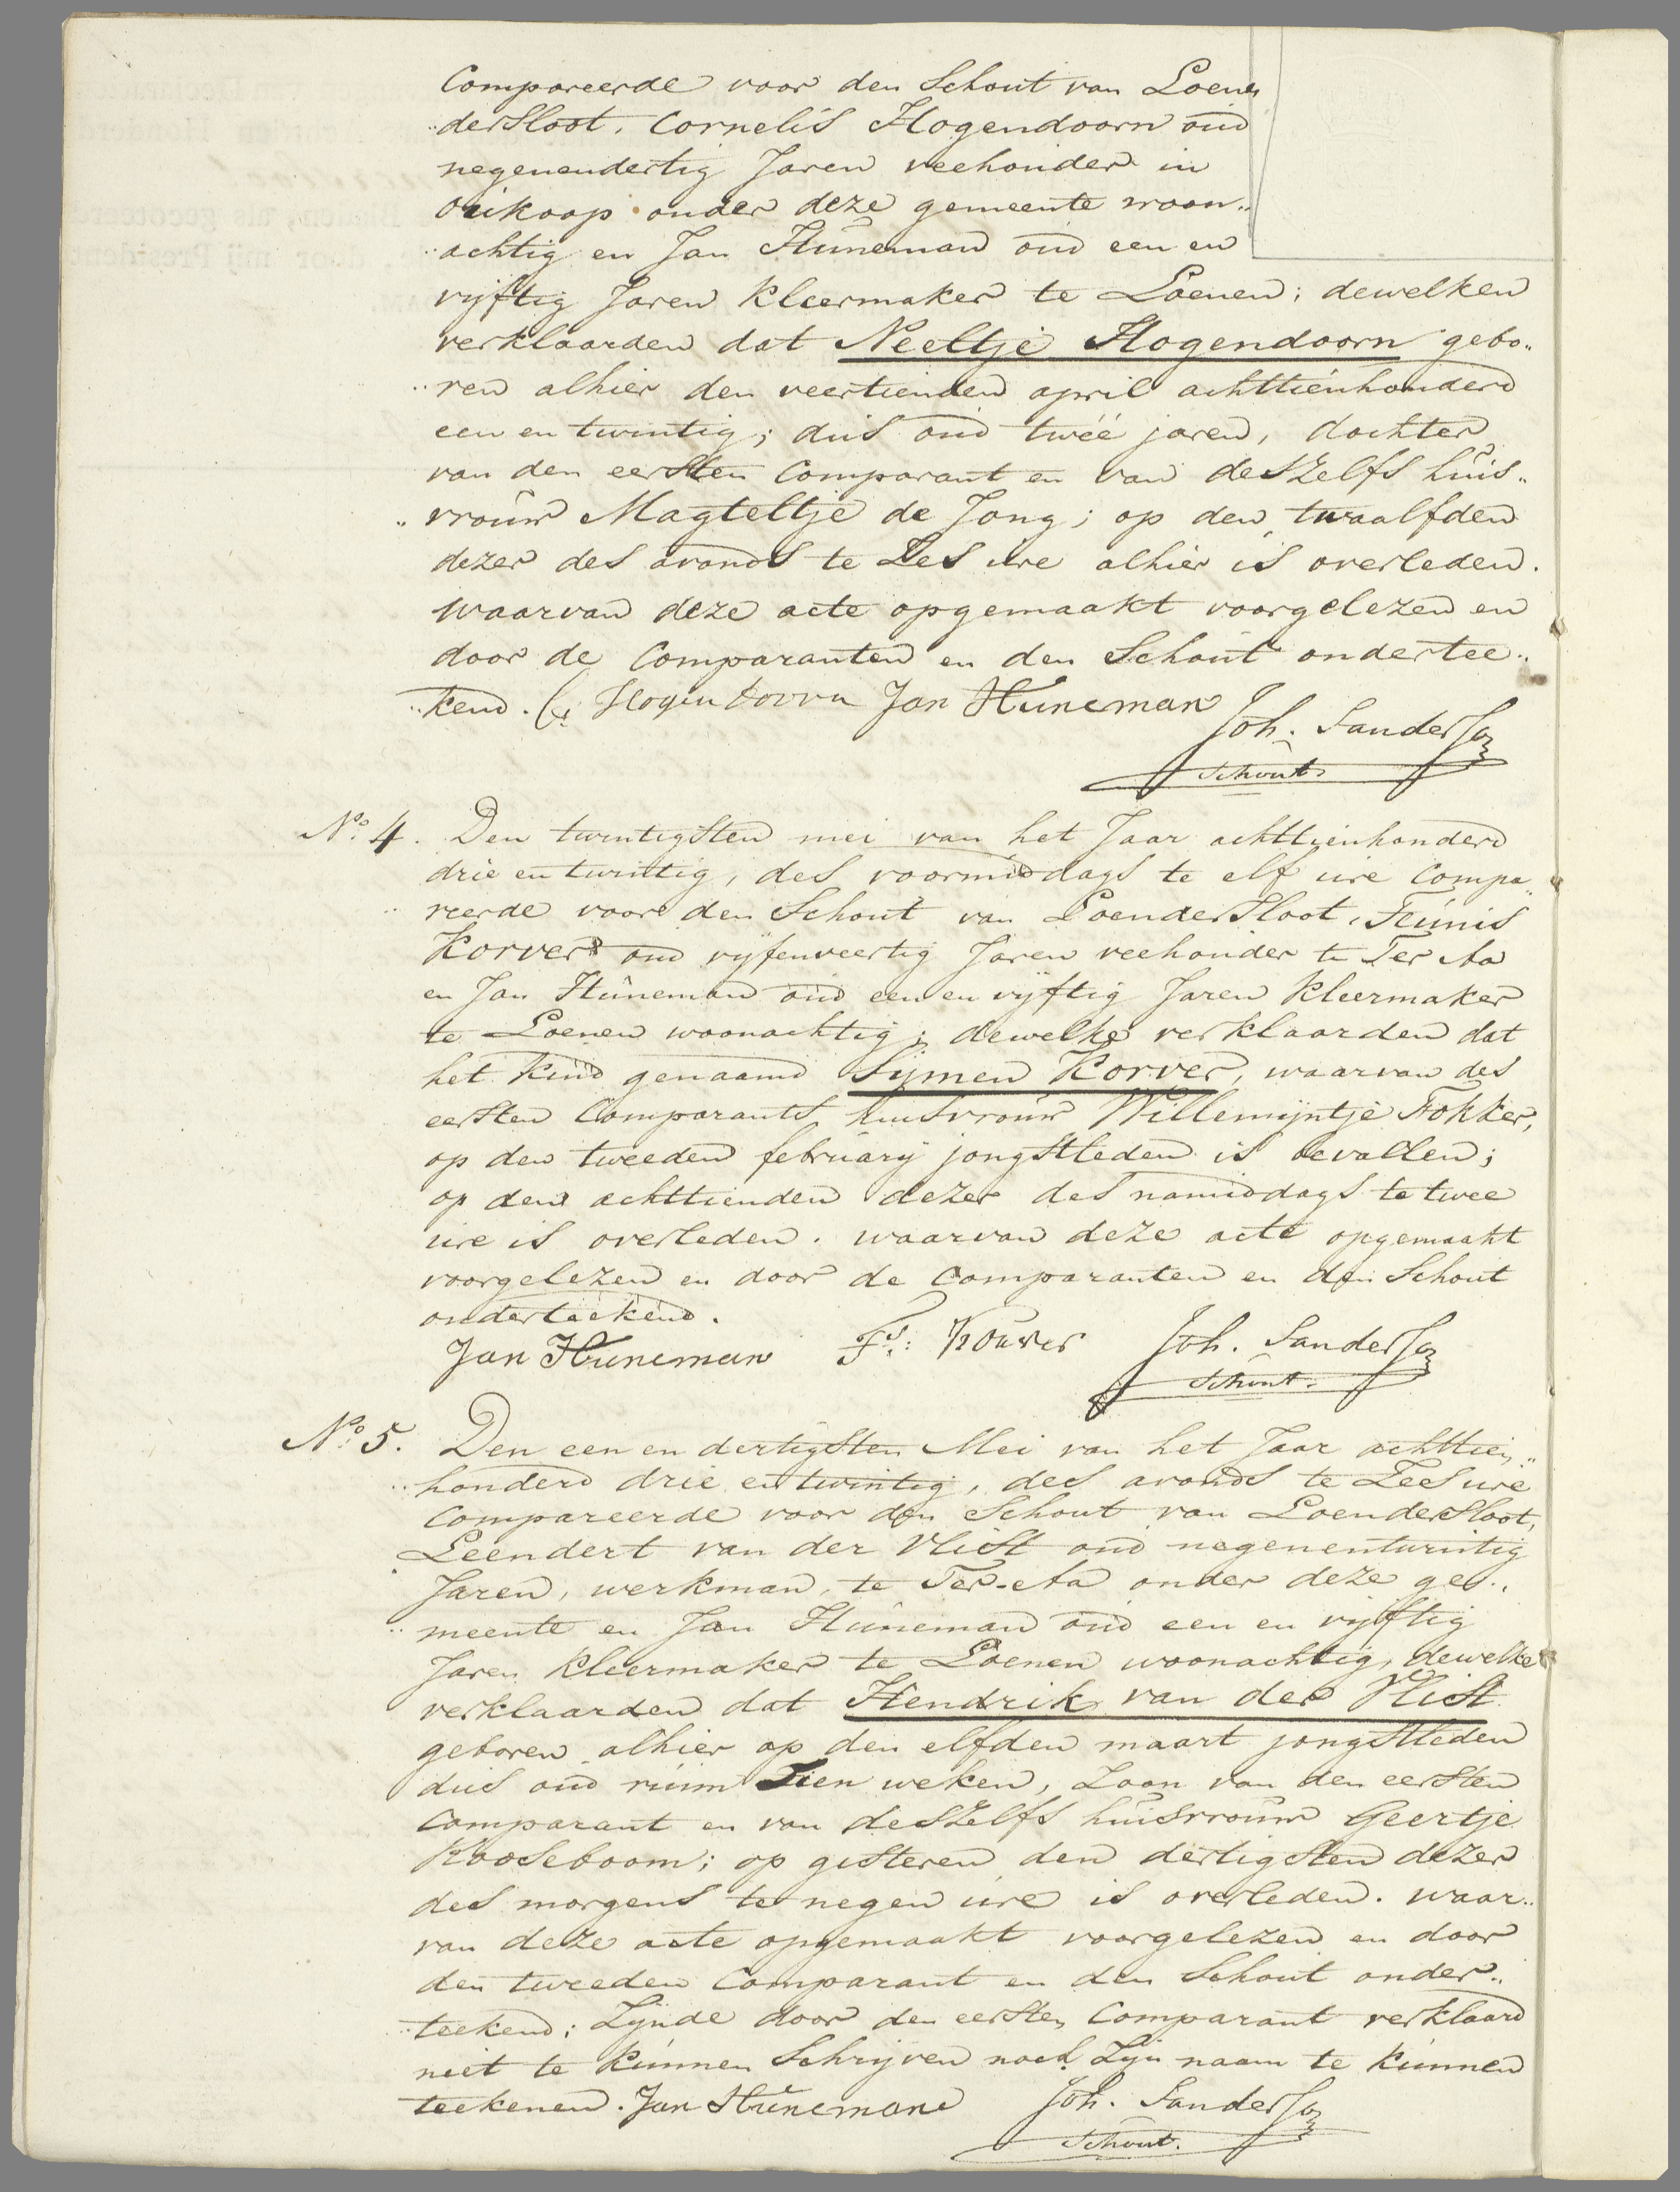 Compareerde voor den Schout van Loenen
„dersloot, Cornelis Hogendoorn oud
negenendertig Jaren veehouder in
Oukoop onder deze gemeente woon„
„achtig en Jan Hûneman oud een en
vijftig Jaren kleermaker te Loenen; dewelken
verklaarden dat Neeltje Hogendoorn gebo„
„ren alhier den veertienden april achttienhonderd
een en twintig; dus oud twee jaren, dochter
van den eersten Comparant en van deszelfs huis„
„vrouw Magteltje de Jong; op den twaalfden
dezer des avonds te Zes ure alhier is overleden.
waarvan deze acte opgemaakt voorgelezen en
door de Comparanten en den Schout ondertee„
„kend. C: Hogendoorn Jan Huneman
Joh. Sanderson
Schout.
No. 4. Den twintigsten mei van het Jaar achttienhonderd
drie en twintig, des voormiddags te elf ure Compa„
„reerde voor den Schout van Loendersloot, Teunis
Korver oud vijfenveertig Jaren veehouder te Ter Aa
en Jan Hûneman oud een en vijftig Jaren kleermaker
te Loenen woonachtig; dewelke verklaarden dat
het kind genaamd Sijmen Korver, waarvan des
eersten Comparants huisvrouw Willemijntje Fokker,
op den tweeden februarij jongstleden is bevallen;
op den achttienden dezer des namiddags te twee
ure is overleden. waarvan deze acte opgemaakt
voorgelezen en door de Comparanten en den Schout
onderteekend.
Jan Huneman Ts: Korver Joh. Sanderson
Schout.
No. 5. Den een en dertigsten Mei van het Jaar achttien„
„honderd drie en twintig, des avonds te Zes ure
Compareerde voor den Schout van Loendersloot,
Leendert van der Vlist oud negenentwintig
Jaren, werkman, te Ter-Aa onder deze ge„
„meente en Jan Hûneman oud een en vijftig
Jaren kleermaker te Loenen woonachtig, dewelke
verklaarden dat Hendrik van der Vlist
geboren alhier op den elfden maart jongstleden
dus oud ruim Tien weken, Zoon van den eersten
Comparant en van deszelfs huisvrouw Geertje
Rooseboom; op gisteren den dertigsten dezer
des morgens te negen ure is overleden. waar„
van deze acte opgemaakt voorgelezen en door
den tweeden Comparant en den Schout onder„
„teekend; Zijnde door den eersten Comparant verklaard
niet te kunnen Schrijven noch Zijn naam te kunnen
teekenen. Jan Huneman Joh. Sanderson
Schout.